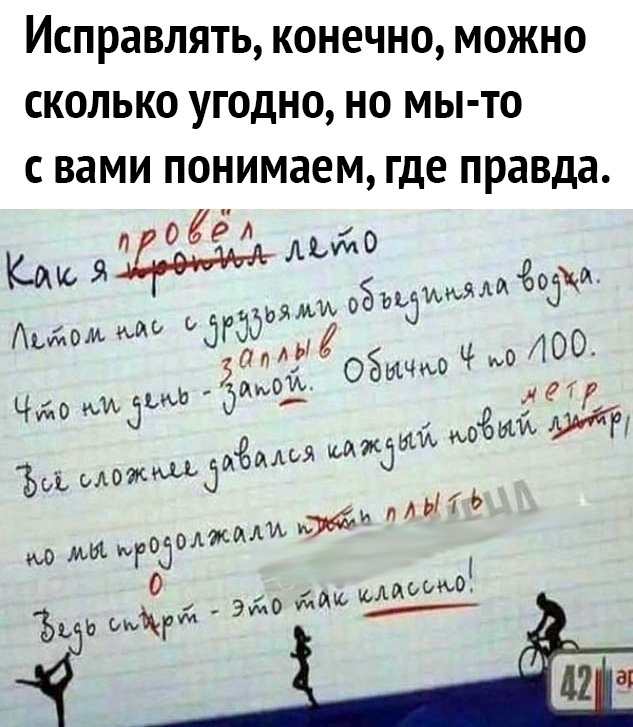 Исправлять, конечно, можно
сколько угодно, но мы-то
с вами понимаем, где правда.
провёл
Как я пропил лето
Летом нас с друзьями объединяла водка.
заплыв
Что ни день - запой. Обычно 4 по 100.
метр
Всё сложнее давался каждый новый литр,
но мы продолжали пить плыть
о
Ведь спирт - это так классно!
42